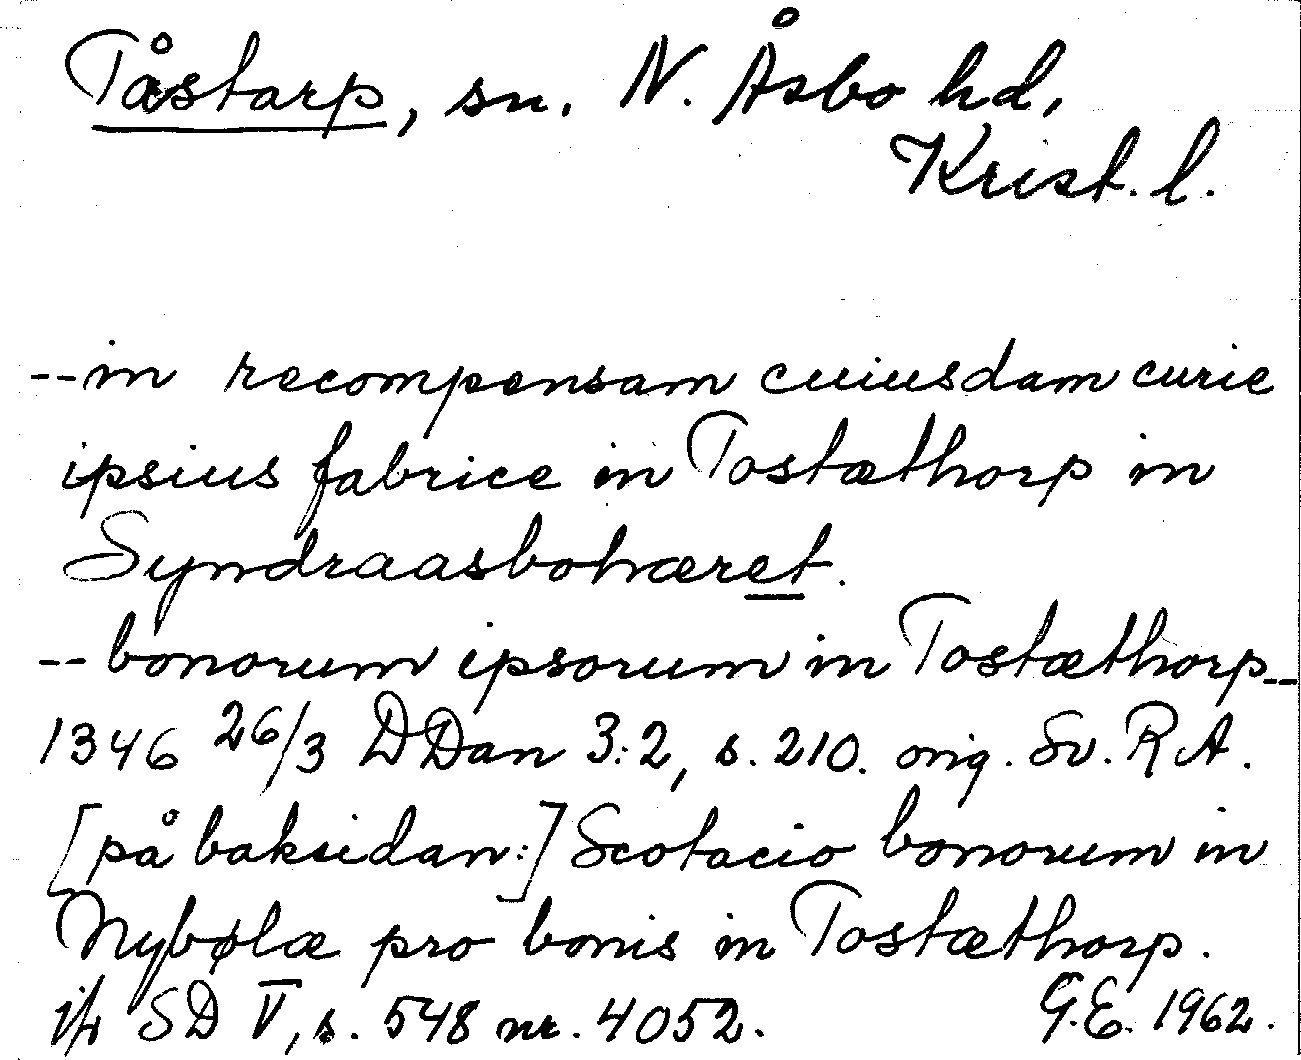 Tåstarp, sn. N. Åsbo hd,
Krist. l.
--in recompensam cuiusdam curie
ipsius fabrice in Tostæthorp in
Syndraasbohæret.
--bonorum ipsorum in Tostæthorp--
1346 26/3 DDan 3:2, s. 210. orig. Sv. RA.
[på baksidan:] Scotacio bonorum in
Nybølæ pro bonis in Tostæthorp.
jfr SD V, s. 548 nr. 4052. G.E. 1962.